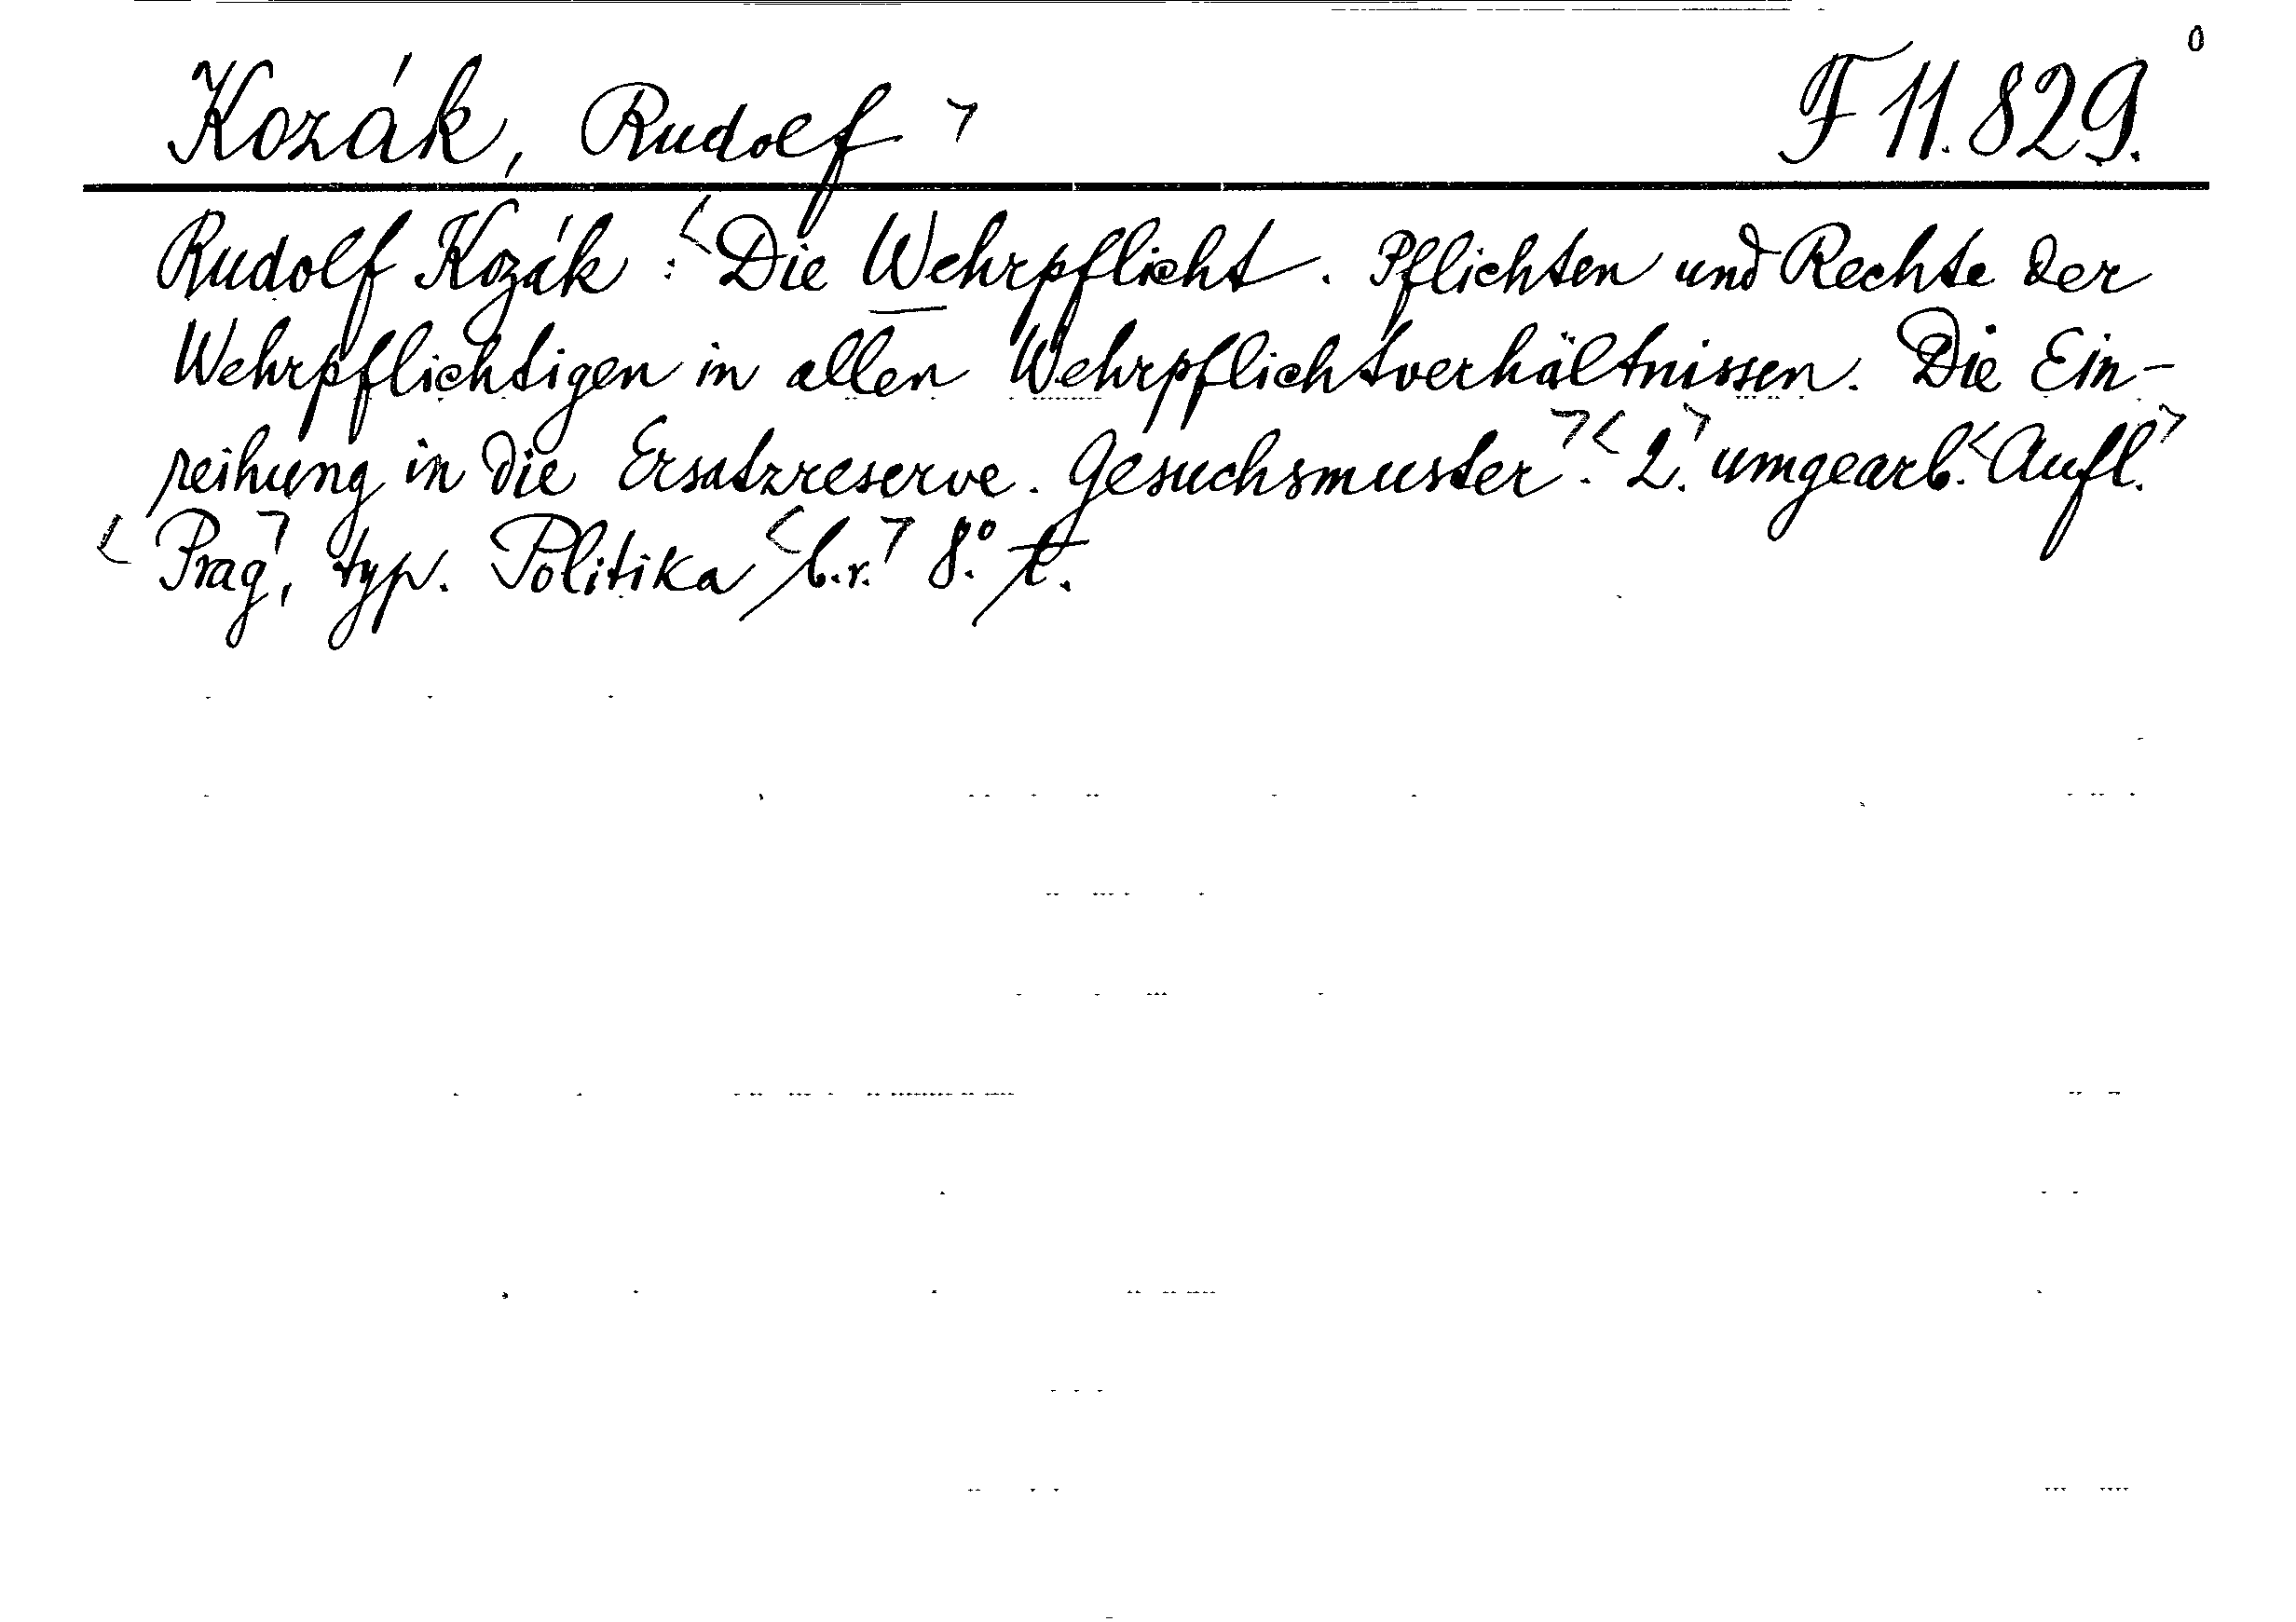 Kozák, Rudolf F 11.829.
Rudolf Kozák : Die Wehrpflicht. Pflichten und Rechte der
Wehrpflichtigen in allen Wehrpflichtverhältnissen. Die Ein-
reihung in die Ersatzreserve. Gesuchsmuster. 2. umgearb. Aufl.
Prag, typ. Politika b.r. 8° t.